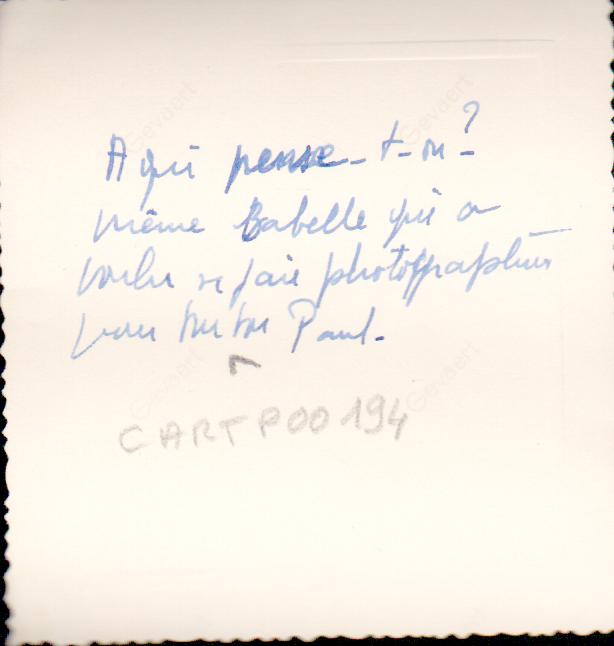 A qui pense-t-on?
même Babelle qui a
voulu se faire photographier
pour tonton Paul.
CARTPOO194
Gevaert
Gevaert
Gevaert
Gevaert